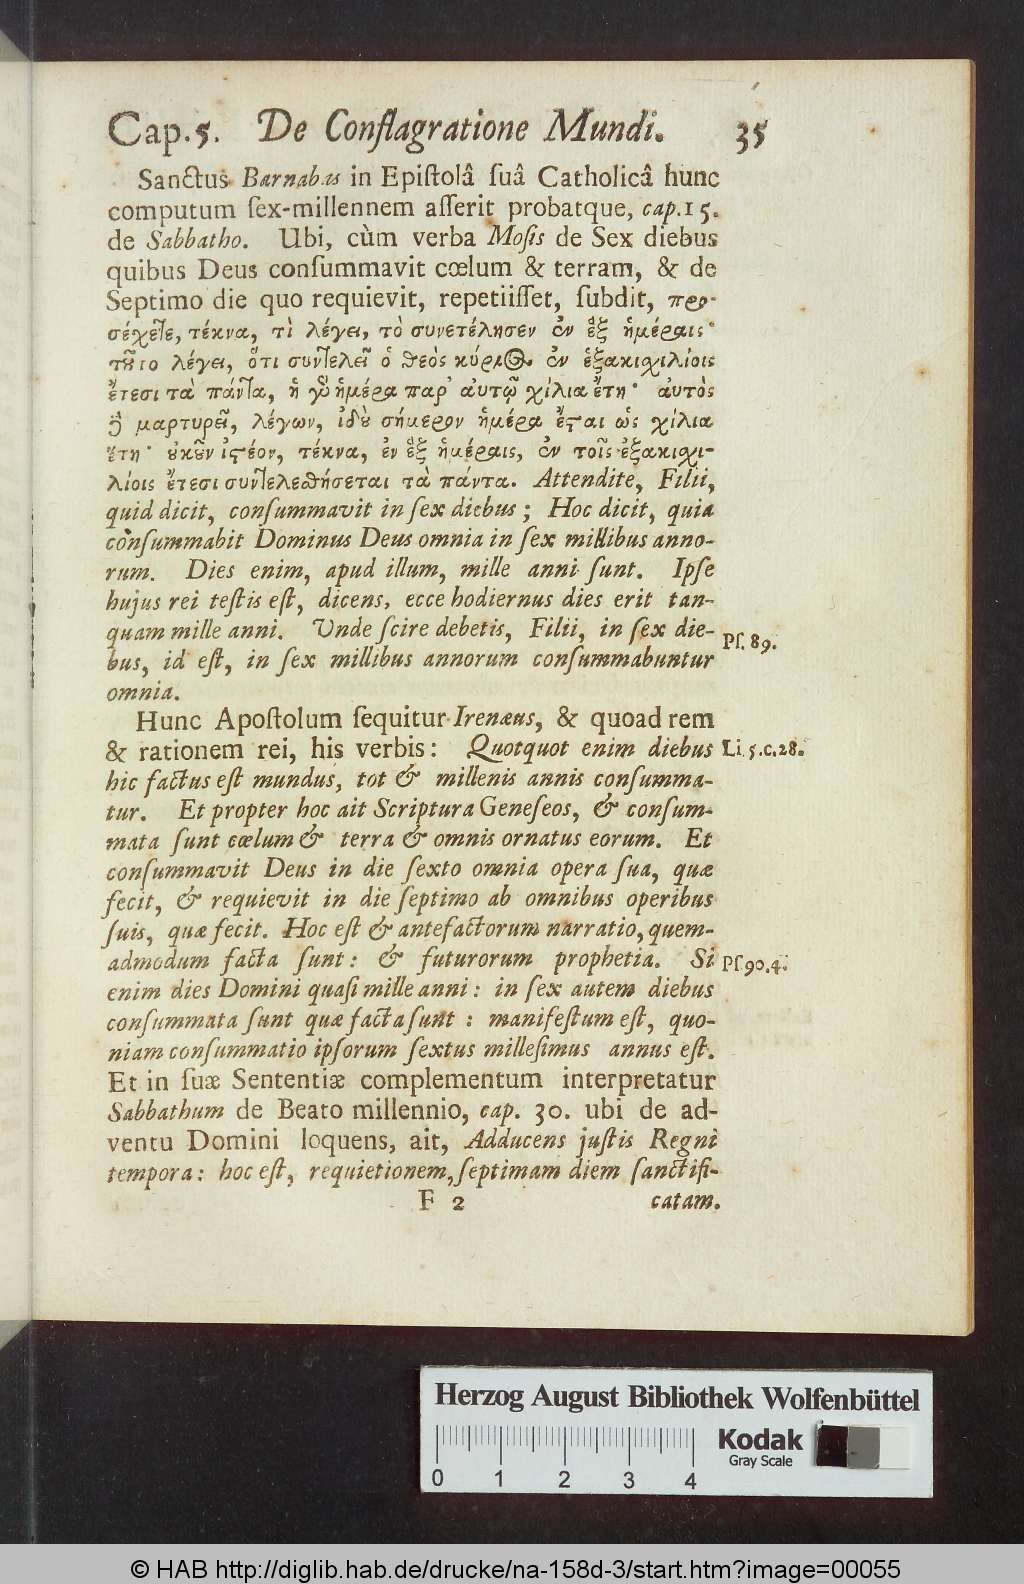 Cap. 5. De Conflagratione Mundi. 35
Sanctus Barnabas in Epistolâ ſuâ Catholicâ hunc
computum ſex-millennem aſſerit probatque, cap. 15.
de Sabbatho. Ubi, cùm verba Moſis de Sex diebus
quibus Deus conſummavit cœlum & terram, & de
Septimo die quo requievit, repetiiſſet, ſubdit, προ-
σέχετε, τέκνα, τὶ λέγει, τὸ συνετέλησεν ἐν ἓξ ἡμέραις·
τοῦτο λέγει, ὅτι συντελεῖ ὁ θεὸς κύριος ἐν ἑξακιχιλίοις
ἔτεσι τὰ πάντα, ἡ γὰρ ἡμέρα παρ' αυτῷ χίλια ἔτη· αυτὸς
δὲ μαρτυρεῖ, λέγων, ἰδοὺ σήμερον ἡμέρα ἔσται ὡς χίλια
ἔτη· οὐκοῦν ἰστέον, τέκνα, ἐν ἓξ ἡμέραις, ἐν τοῖς ἑξακιχι-
λίοις ἔτεσι συντελεσθήσεται τὰ πάντα. Attendite, Filii,
quid dicit, conſummavit in ſex diebus; Hoc dicit, quia
conſummabit Dominus Deus omnia in ſex millibus anno-
rum. Dies enim, apud illum, mille anni ſunt. Ipſe
hujus rei teſtis eſt, dicens, ecce hodiernus dies erit tan-
quam mille anni. Unde ſcire debetis, Filii, in ſex die-
Pſ. 89.
bus, id eſt, in ſex millibus annorum conſummabuntur
omnia.
Hunc Apoſtolum ſequitur Irenæus, & quoad rem
& rationem rei, his verbis: Quotquot enim diebus
Li. 5. c. 28.
hic factus eſt mundus, tot & millenis annis conſumma-
tur. Et propter hoc ait Scriptura Geneſeos, & conſum-
mata ſunt cœlum & terra & omnis ornatus eorum. Et
conſummavit Deus in die ſexto omnia opera ſua, quæ
fecit, & requievit in die ſeptimo ab omnibus operibus
ſuis, quæ fecit. Hoc eſt & antefactorum narratio, quem-
admodum facta ſunt: & futurorum prophetia. Si
Pſ 90. 4.
enim dies Domini quaſi mille anni: in ſex autem diebus
conſummata ſunt quæ facta ſunt: manifeſtum eſt, quo-
niam conſummatio ipſorum ſextus milleſimus annus eſt.
Et in ſuæ Sententiæ complementum interpretatur
Sabbathum de Beato millennio, cap. 30. ubi de ad-
ventu Domini loquens, ait, Adducens juſtis Regni
tempora: hoc eſt, requietionem, ſeptimam diem ſanctifi-
F 2 catam.
Herzog August Bibliothek Wolfenbüttel
Kodak
Gray Scale
0 1 2 3 4
© HAB http://diglib.hab.de/drucke/na-158d-3/start.htm?image=00055